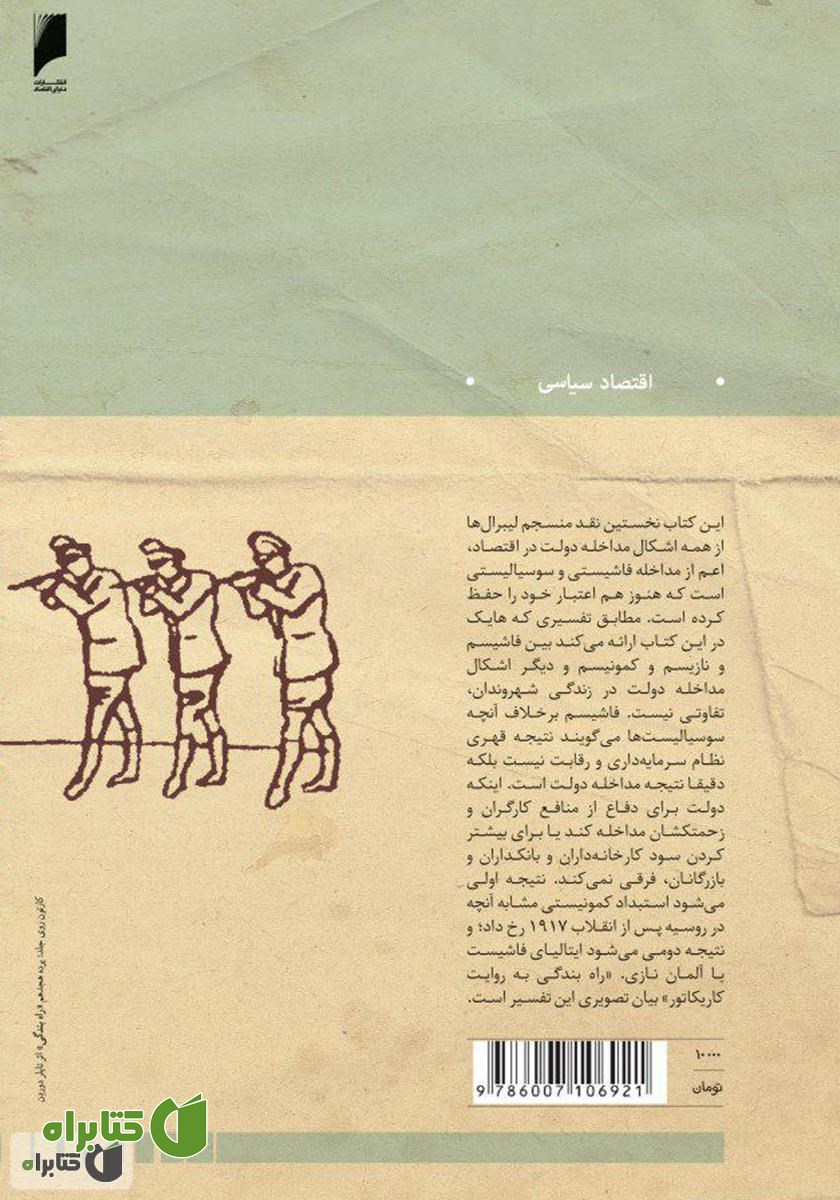 انتشارات
دنیای اقتصاد
• اقتصاد سیاسی •
این کتاب نخستین نقد منسجم لیبرال‌ها
از همه اشکال مداخله دولت در اقتصاد،
اعم از مداخله فاشیستی و سوسیالیستی
است که هنوز هم اعتبار خود را حفظ
کرده است. مطابق تفسیری که هایک
در این کتاب ارائه می‌کند بین فاشیسم
و نازیسم و کمونیسم و دیگر اشکال
مداخله دولت در زندگی شهروندان،
تفاوتی نیست. فاشیسم برخلاف آنچه
سوسیالیست‌ها می‌گویند نتیجه قهری
نظام سرمایه‌داری و رقابت نیست بلکه
دقیقا نتیجه مداخله دولت است. اینکه
دولت برای دفاع از منافع کارگران و
زحمتکشان مداخله کند یا برای بیشتر
کردن سود کارخانه‌داران و بانکداران و
بازرگانان، فرقی نمی‌کند. نتیجه اولی
می‌شود استبداد کمونیستی مشابه آنچه
در روسیه پس از انقلاب ۱۹۱۷ رخ داد؛ و
نتیجه دومی می‌شود ایتالیای فاشیست
یا آلمان نازی. «راه بندگی به روایت
کاریکاتور» بیان تصویری این تفسیر است.
کارتون روی جلد: پرده هجدهم «راه بندگی» اثر تایلر دوردن
۱۰۰۰۰
تومان
9 786007 106921
کتابراه
کتابراه